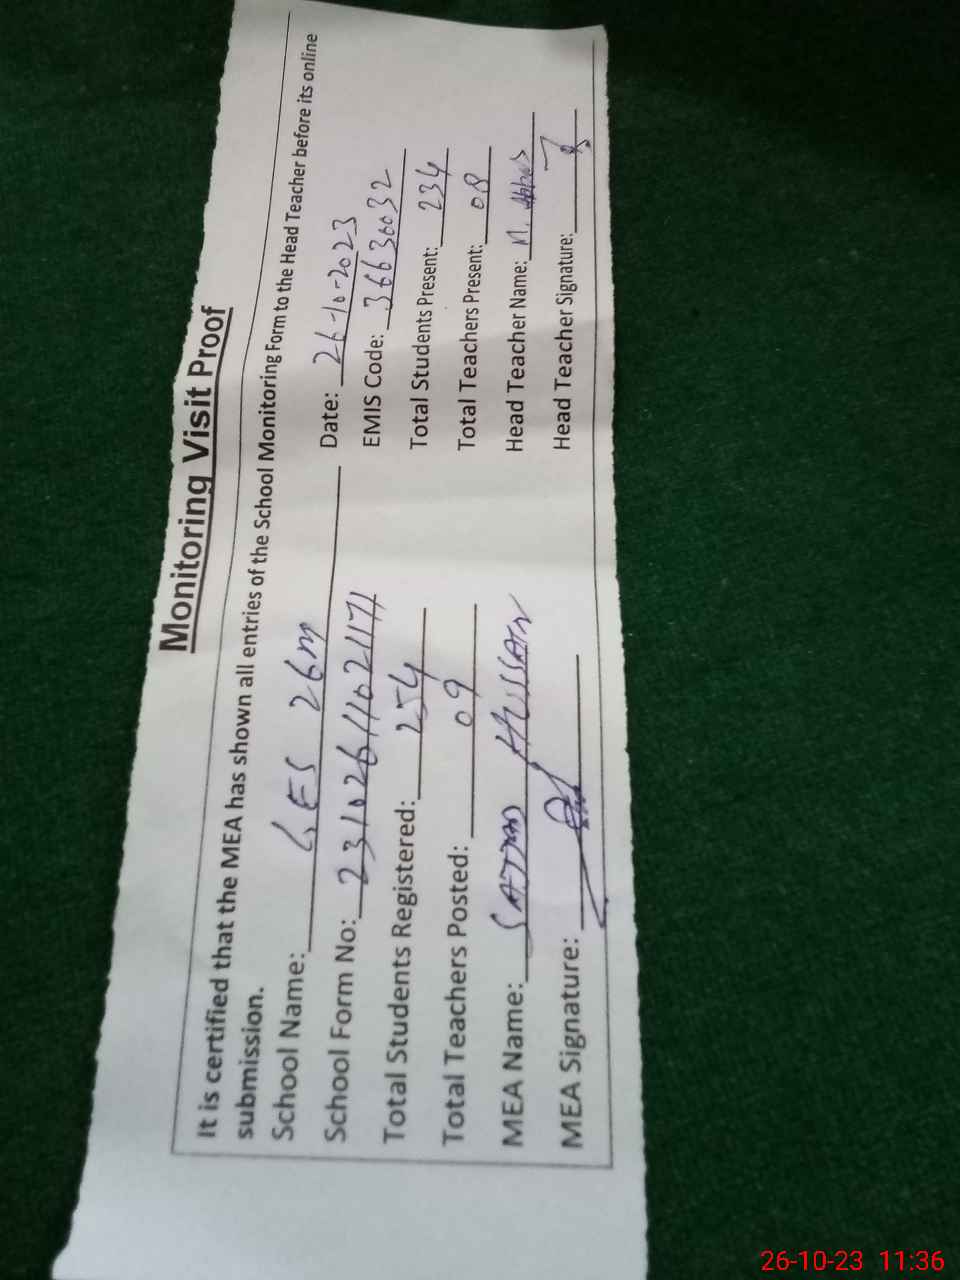 Monitoring Visit Proof
It is certified that the MEA has shown all entries of the School Monitoring Form to the Head Teacher before its online
submission.
School Name: GES 26m Date: 26-10-2023
School Form No: 23102611021171 EMIS Code: 36630032
Total Students Registered: 254 Total Students Present: 234
Total Teachers Posted: 09 Total Teachers Present: 08
MEA Name: SAJJAD HUSSAIN Head Teacher Name: M. Abbas
MEA Signature: Head Teacher Signature:
26-10-23 11:36